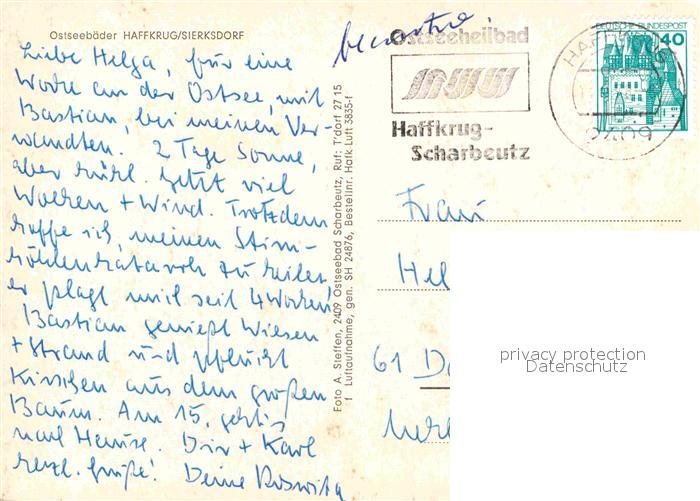 Ostseebäder HAFFKRUG/SIERKSDORF
Liebe Helga, für eine
Woche an der Ostsee, mit
Bastian, bei meinen Ver-
wandten. 2 Tage Sonne,
aber kühl. Jetzt viel
Wolken + Wind. Trotzdem
hoffe ich, meinen Stirn-
höhlenkatarrh zu heilen,
er plagt mich seit 4 Wochen.
Bastian genießt Wiesen
+ Strand und pflückt
Kirschen aus dem großen
Baum. Am 15. geht's
nach Hause. Dir + Karl
herzl. Grüße! Deine Roswita
Foto A. Steffen, 2409 Ostseebad Scharbeutz, Ruf: T'dorf 27 15
f Luftaufnahme, gen. SH 24876, Bestellnr: Hafk Luft 3835-f
Ostseeheilbad
Haffkrug-
Scharbeutz
DEUTSCHE BUNDESPOST
40
2409
Frau
Hel
61 Da
privacy protection
Datenschutz